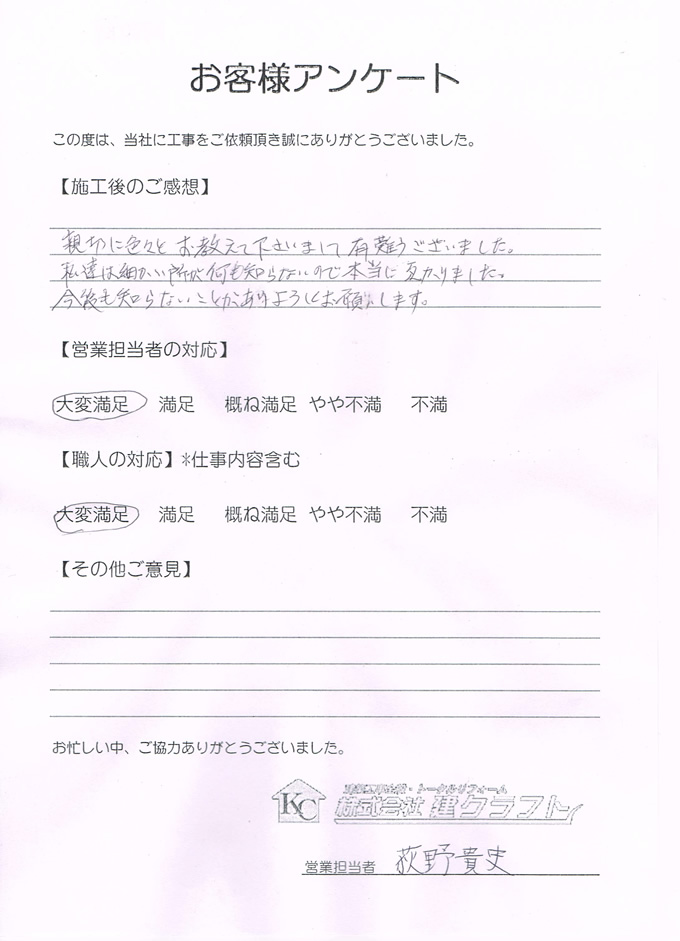 お客様アンケート
この度は、当社に工事をご依頼頂き誠にありがとうございました。
【施工後のご感想】
親切に色々とお教えて下さいまして有難うございました。
私達は細かい所が何も知らないので本当に助かりました。
今後も知らないことがありようしくお願いします。
【営業担当者の対応】
大変満足 満足 概ね満足 やや不満 不満
【職人の対応】*仕事内容含む
大変満足 満足 概ね満足 やや不満 不満
【その他ご意見】
お忙しい中、ご協力ありがとうございました。
・トータルリフォーム
KC 株式会社 建クラフト
営業担当者 荻野貴史